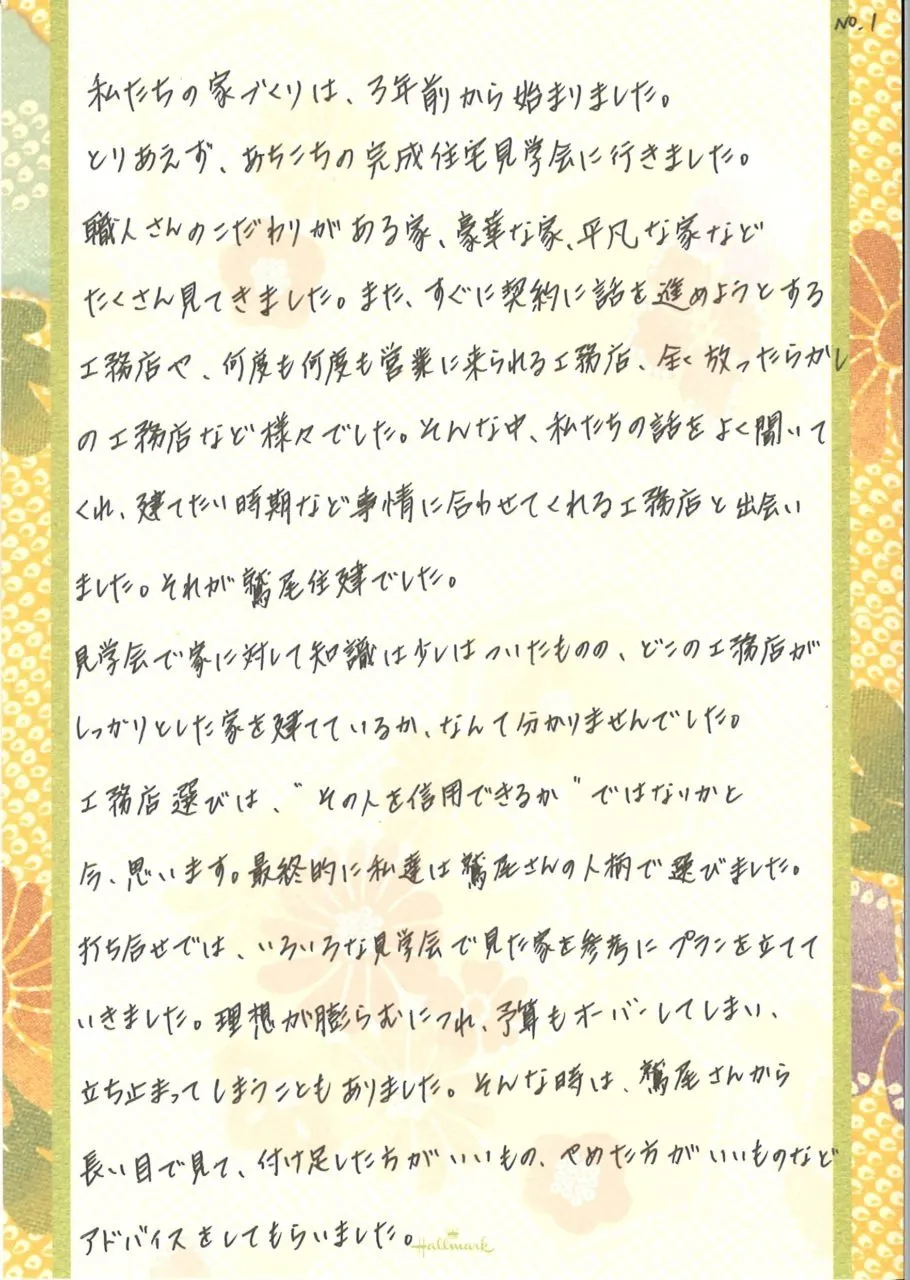 No.1
私たちの家づくりは、3年前から始まりました。
とりあえず、あちこちの完成住宅見学会に行きました。
職人さんのこだわりがある家、豪華な家、平凡な家など
たくさん見てきました。また、すぐに契約に話を進めようとする
工務店や、何度も何度も営業に来られる工務店、全く放ったらかし
の工務店など様々でした。そんな中、私たちの話をよく聞いて
くれ、建てたい時期など事情に合わせてくれる工務店と出会い
ました。それが鷲尾住建でした。
見学会で家に対して知識は少しはついたものの、どこの工務店が
しっかりとした家を建てているか、なんて分かりませんでした。
工務店選びは、"その人を信用できるか"ではないかと
今、思います。最終的に私達は鷲尾さんの人柄で選びました。
打ち合せでは、いろいろな見学会で見た家を参考にプランを立てて
いきました。理想が膨らむにつれ、予算もオーバーしてしまい、
立ち止まってしまうこともありました。そんな時は、鷲尾さんから
長い目で見て、付け足した方がいいもの、やめた方がいいものなど
アドバイスをしてもらいました。
Hallmark